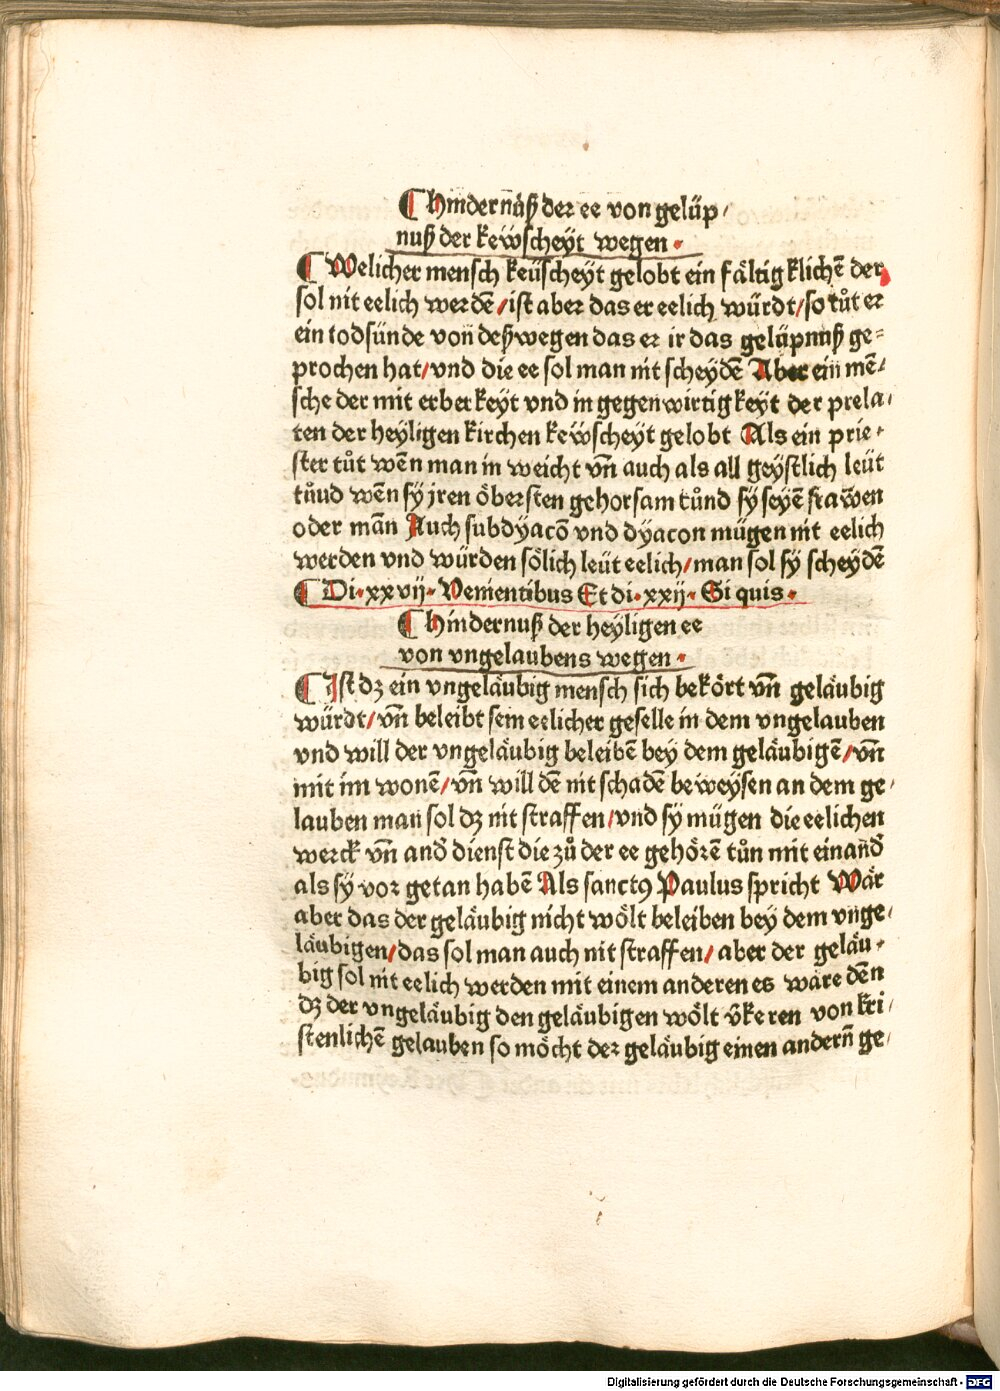 ¶ Hindernäß der ee von gelüp⸗
nuß der keẅscheyt wegen.
¶ Welicher mensch keüscheyt gelobt ein fältigklichẽ der
sol nit eelich werdẽ/ ist aber das er eelich würdt/ so tůt er
ein todsünde von deßwegen das er ir das gelüpnuß ge⸗
prochen hat/ vnd die ee sol man nit scheydẽ Aber ein mẽ⸗
sche der mit erberkeyt vnd in gegenwirtigkeyt der prela⸗
ten der heyligen kirchen keẅscheyt gelobt Als ein prie⸗
ster tůt wẽn man in weicht vñ auch als all geystlich leüt
tůnd wẽn sÿ jren öbersten gehorsam tůnd sÿ seyẽ frawen
oder mañ Auch subdyacõ vnd dyacon mügen nit eelich
werden vnd würden sölich leüt eelich/ man sol sÿ scheydẽ
¶ Di. xxvij. Venientibus Et di. xxij. Si quis.
¶ Hindernuß der heyligen ee
von vngelaubens wegen.
¶ Ist dz ein vngeläubig mensch sich bekört vñ geläubig
würdt/ vñ beleibt sein eelicher geselle in dem vngelauben
vnd will der vngeläubig beleibẽ bey dem geläubigẽ/ vñ
mit im wonẽ/ vñ will dẽ nit schadẽ beweysen an dem ge⸗
lauben man sol dz nit straffen/ vnd sÿ mügen die eelichen
werck vñ and̄ dienst die zů der ee gehörẽ tůn mit einand̄
als sÿ vor getan habẽ Als sanctꝰ Paulus spricht Wär
aber das der geläubig nicht wölt beleiben bey dem vnge⸗
läubigen/ das sol man auch nit straffen/ aber der geläu⸗
big sol nit eelich werden mit einem anderen es wäre dẽn
dz der vngeläubig den geläubigen wölt v̄keren von kri⸗
stenlichẽ gelauben so möcht der geläubig einen anderñ ge⸗
Digitalisierung gefördert durch die Deutsche Forschungsgemeinschaft - DFG